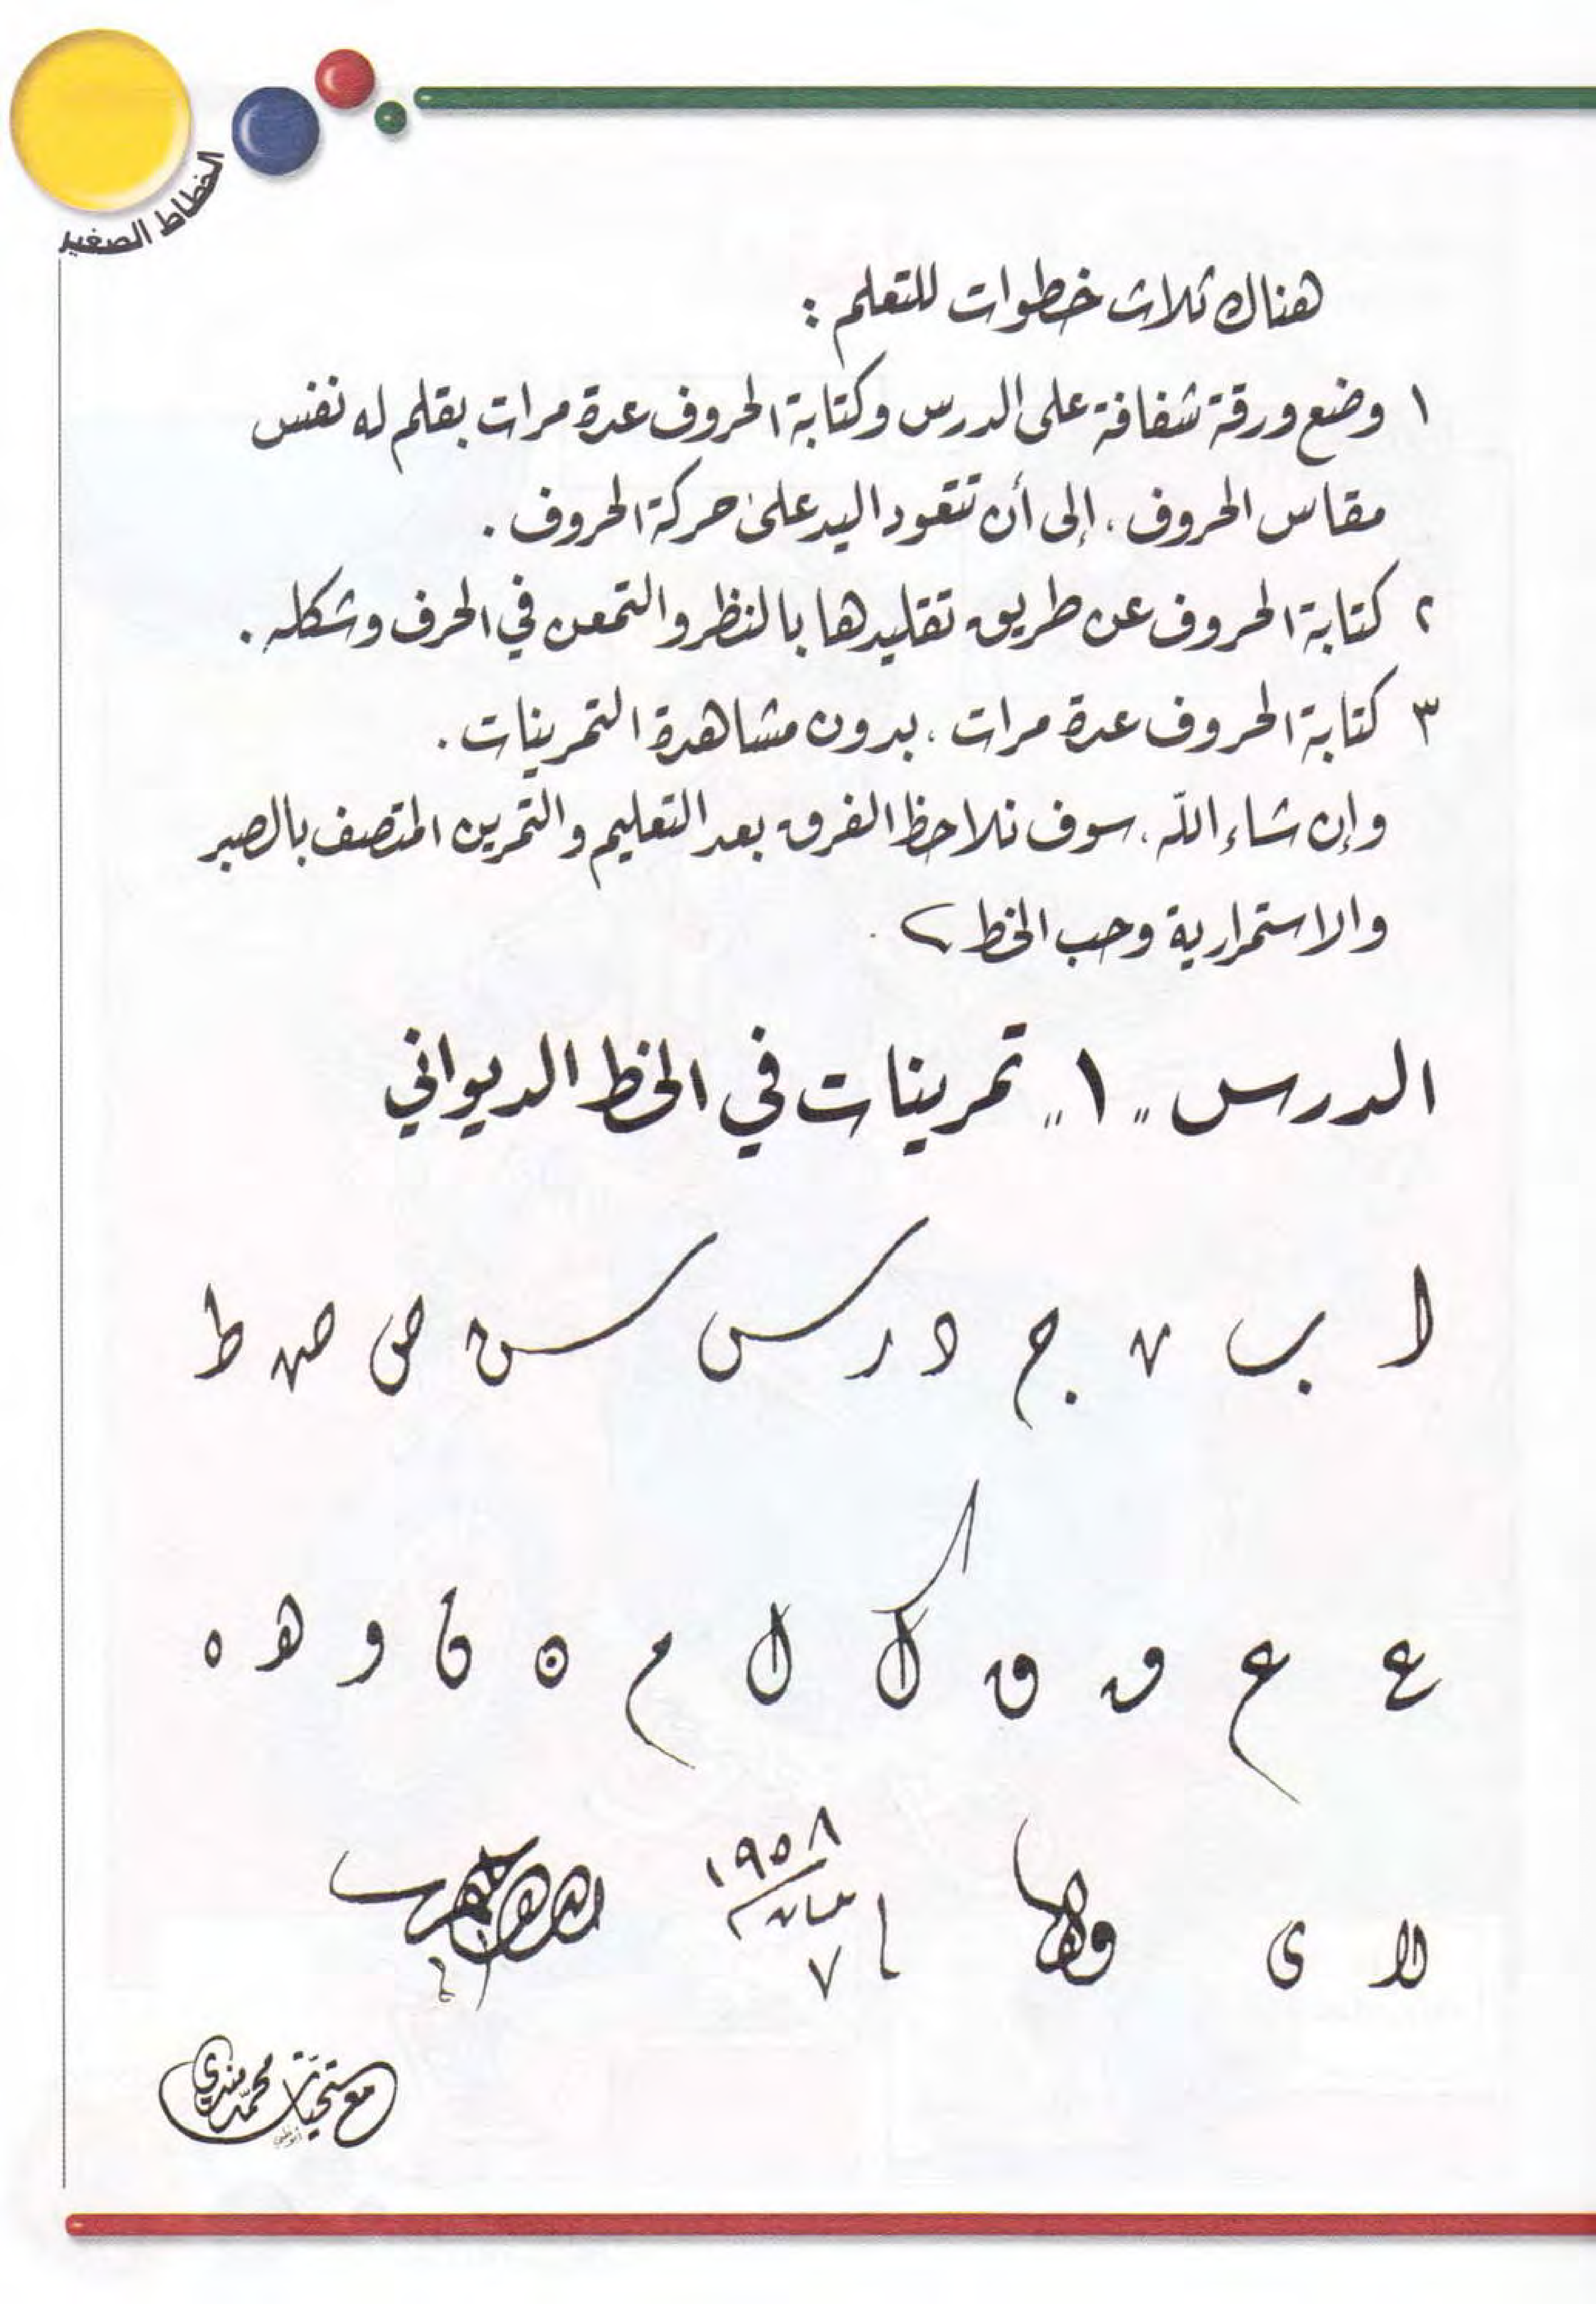 الخطاط الصغير
هناك ثلاث خطوات للتعلم :
١ وضع ورقة شفافة على الدرس وكتابة الحروف عدة مرات بقلم له نفس
مقاس الحروف ، إلى أن تتعود اليد على حركة الحروف .
٢ كتابة الحروف عن طريق تقليدها بالنظر والتمعن في الحرف وشكله .
٣ كتابة الحروف عدة مرات ، بدون مشاهدة التمرينات .
وإن شاء الله ، سوف نلاحظ الفرق بعد التعليم والتمرين المتصف بالصبر
والاستمرارية وحب الخط .
الدرس "١" تمرينات في الخط الديواني
ا ب ن ج د ر س س ص ص ط
ع ع ق ق ك ل م ن ن و ه ه
لا ى
١٩٥٨
٧
مع تحيات محمد مندي
أبوظبي